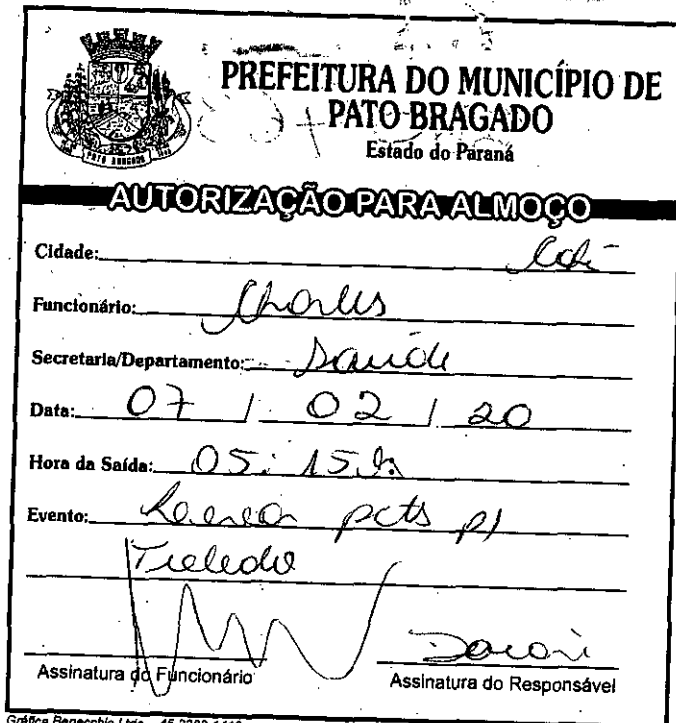 PREFEITURA DO MUNICÍPIO DE
PATO BRAGADO
Estado do Paraná
PATO BRAGADO
AUTORIZAÇÃO PARA ALMOÇO
Cidade:
Funcionário: Charles
Secretaria/Departamento: Saúde
Data: 07 / 02 / 20
Hora da Saída: 05:15 h
Evento: pcts p/
Toledo
Assinatura do Funcionário
Assinatura do Responsável